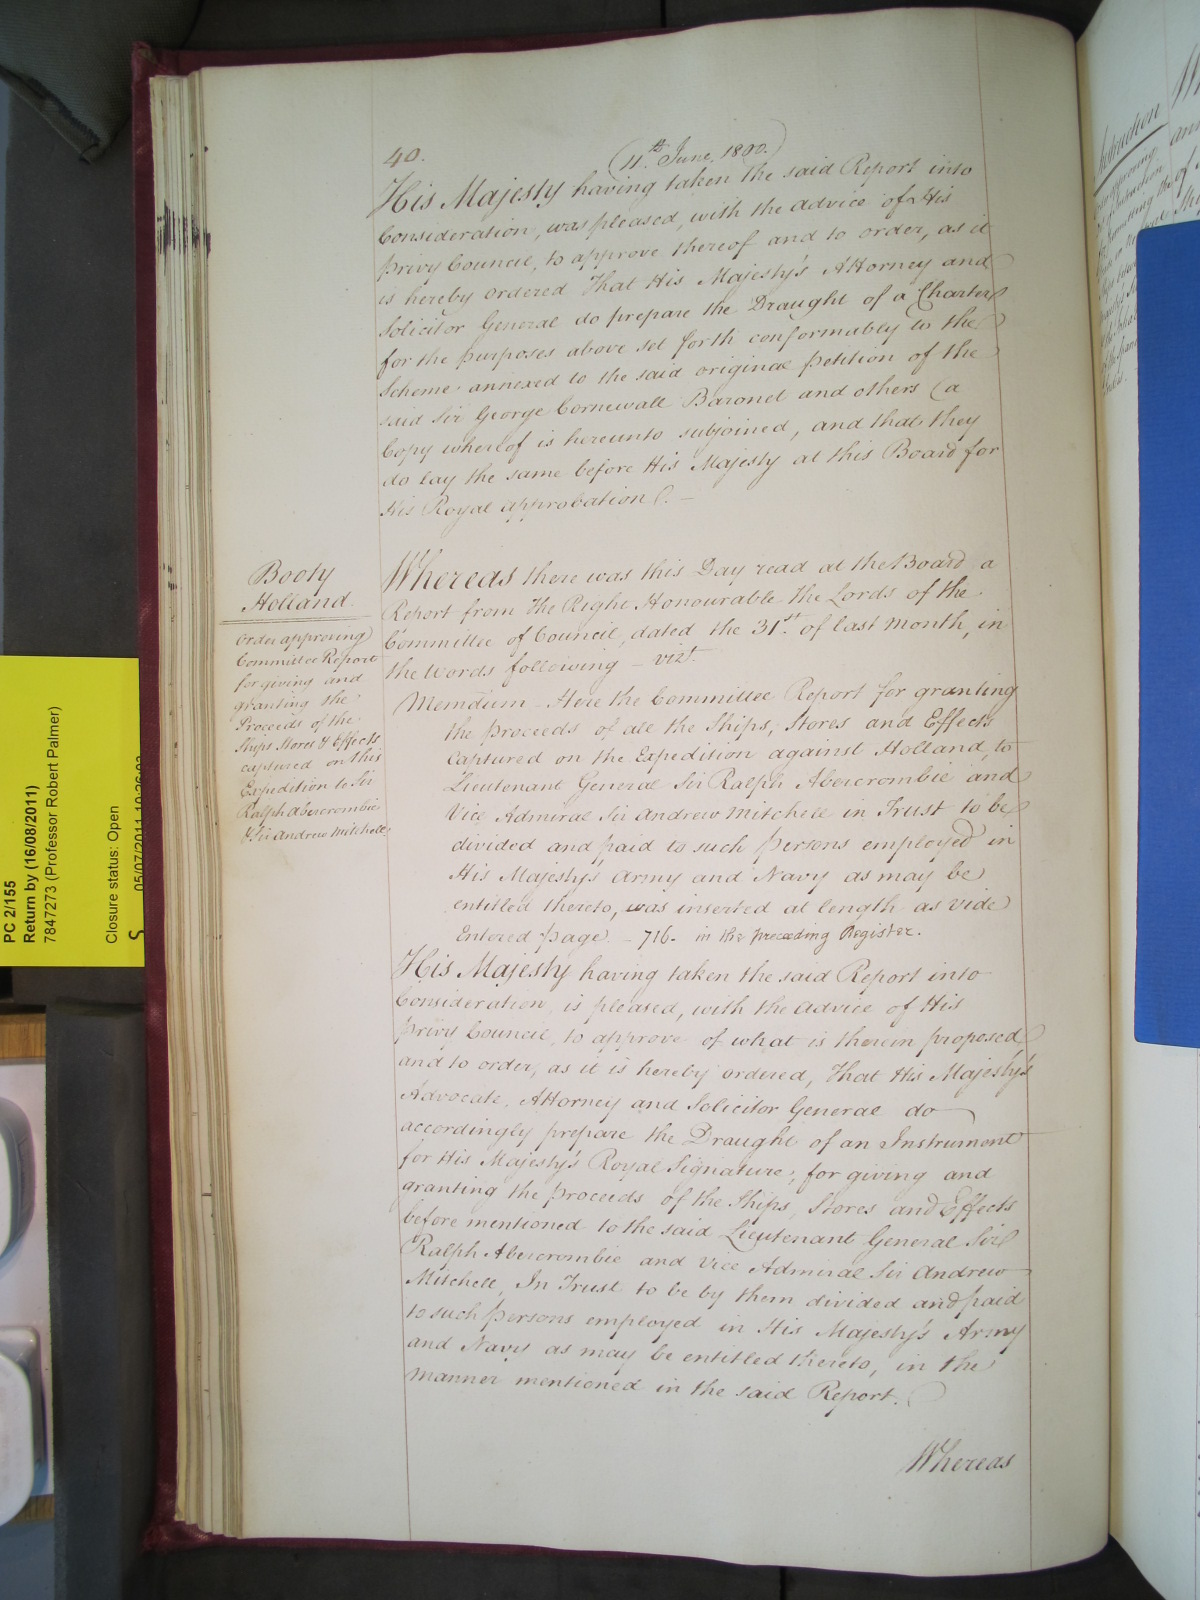 40.
(11th June, 1800.)
His Majesty having taken the said Report into
Consideration, was pleased, with the advice of His
Privy Council, to approve thereof and to order, as it
is hereby Ordered That His Majesty's Attorney and
Solicitor General do prepare the Draught of a Charter
for the purposes above set forth conformably to the
Scheme annexed to the said original Petition of the
said Sir George Cornewall Baronet and others (a
Copy whereof is hereunto subjoined, and that they
do lay the same before His Majesty at this Board for
His Royal Approbation. –
Booty
Holland.
Order approving
Committee Report
for giving and
granting the
Proceeds of the
Ships Stores & Effects
captured on this
Expedition to Sir
Ralph Abercrombie
& Sir Andrew Mitchell
Whereas there was this Day read at the Board a
Report from The Right Honourable the Lords of the
Committee of Council, dated the 31st. of last Month, in
the Words following – vizt.
Memdum – Here the Committee Report for granting
the Proceeds of all the Ships, Stores and Effects
Captured on the Expedition against Holland, to
Lieutenant General Sir Ralph Abercrombie and
Vice Admiral Sir Andrew Mitchell in Trust to be
divided and paid to such Persons employed in
His Majesty's Army and Navy as may be
entitled thereto, was inserted at length as vide
Entered page. – 716. in the preceeding Register.
His Majesty having taken the said Report into
Consideration, is pleased, with the advice of His
Privy Council, to approve of what is therein proposed
and to order, as it is hereby ordered, That His Majesty's
Advocate, Attorney and Solicitor General do
accordingly prepare the Draught of an Instrument
for His Majesty's Royal Signature, for giving and
granting the Proceeds of the Ships, Stores and Effects
before mentioned to the said Lieutenant General Sir
Ralph Abercrombie and Vice Admiral Sir Andrew
Mitchell, In Trust to be by them divided and paid
to such Persons employed in His Majesty's Army
and Navy as may be entitled thereto, in the
Manner mentioned in the said Report.
Whereas
PC 2/155
Return by (16/08/2011)
7847273 (Professor Robert Palmer)
Closure status: Open
05/07/2011